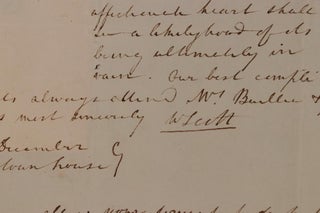 affectionate heart shall
in a likelyhood of its
being ultimately in
vain. Our best compli
always attend Mrs Baillie &
most sincerely WScott
December
house